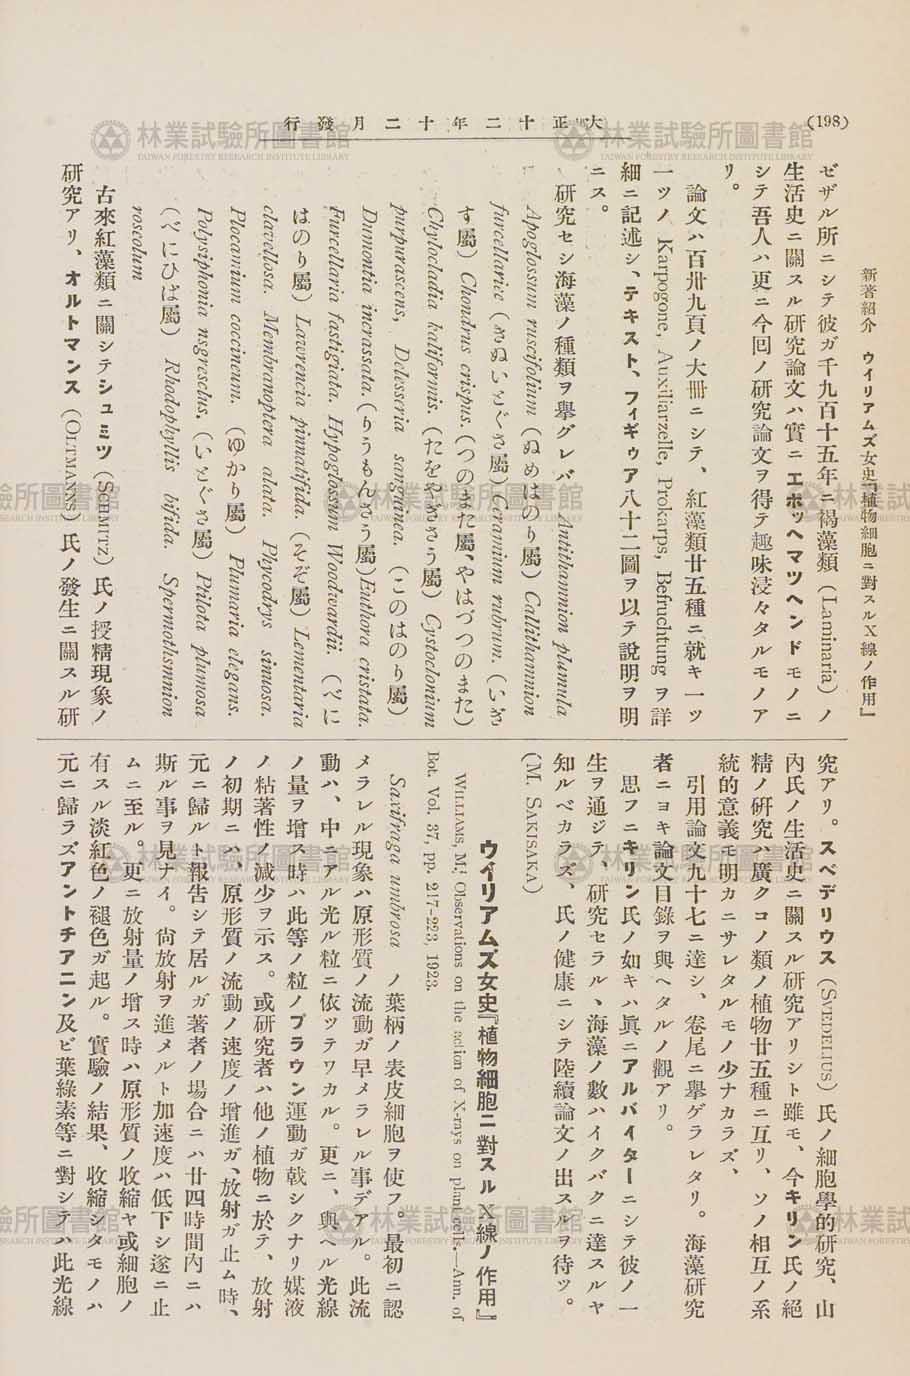 (198)
行發月二十年二十正大
新著紹介 ウイリアムズ女史『植物細胞ニ對スルX線ノ作用』
ゼザル所ニシテ彼ガ千九百十五年ニ褐藻類 (Laminaria) ノ
生活史ニ關スル研究論文ハ實ニエポッヘマツヘンドモノニ
シテ吾人ハ更ニ今回ノ研究論文ヲ得テ趣味浸々タルモノア
リ。
論文ハ百卅九頁ノ大冊ニシテ、紅藻類廿五種ニ就キ一ツ
一ツノ Karpogone, Auxiliarzelle, Prokarps, Befruchtung ヲ詳
細ニ記述シ、テキスト、フィギゥア八十二圖ヲ以テ說明ヲ明
ニス。
研究セシ海藻ノ種類ヲ擧グレバ Antithamnion plumula
Apoglossum ruscifolium (ぬめはのり屬) Callithamnion
furcellariæ (きぬいとぐさ屬) Ceramium rubrum. (いぎ
す屬) Chondrus crispus. (つのまた屬、やはづつのまた)
Chylocladia kaliformis. (たをやぎさう屬) Cystoclonium
purpurascens, Delesseria sanguinea. (このはのり屬)
Dumontia incrassata. (りうもんさう屬) Euthora cristata.
Furcellaria fastigiata. Hypoglossum Woodwardii. (べに
はのり屬) Lawrencia pinnatifida. (そぞ屬) Lementaria
clavellosa. Membranoptera alata. Phycodrys sinuosa.
Plocamium coccineum. (ゆかり屬) Plumaria elegans.
Polysiphonia nsgresclus. (いとぐさ屬) Philota plumosa
(べにひば屬) Rhodophyllis bifida. Spermothsmnion
roseolum
古來紅藻類ニ關シテシュミツ (SCHMITZ) 氏ノ授精現象ノ
研究アリ、オルトマンス (OLTMANNS) 氏ノ發生ニ關スル研
究アリ。スベデリウス (SVEDELIUS) 氏ノ細胞學的研究、山
內氏ノ生活史ニ關スル研究アリシト雖モ、今キリン氏ノ絕
精ノ研究ハ廣クコノ類ノ植物廿五種ニ互リ、ソノ相互ノ系
統的意義モ明カニサレタルモノ少ナカラズ、
引用論文九十七ニ達シ、卷尾ニ擧ゲラレタリ。海藻研究
者ニヨキ論文目錄ヲ與ヘタルノ觀アリ。
思フニキリン氏ノ如キハ眞ニアルバイターニシテ彼ノ一
生ヲ通ジテ、硏究セラルヽ海藻ノ數ハイクバクニ達スルヤ
知ルベカラズ、氏ノ健康ニシテ陸續論文ノ出スルヲ待ツ。
(M. SAKISAKA)
ウイリアムズ女史『植物細胞ニ對スルX線ノ作用』
WILLIAMS, M.; Observations on the action of X-rays on plant cells.—Ann. of
Bot. Vol. 37, pp. 217-223, 1923.
Saxifraga umbrosa ノ葉柄ノ表皮細胞ヲ使フ。最初ニ認
メラレル現象ハ原形質ノ流動ガ早メラレル事デアル。此流
動ハ、中ニアル光ル粒ニ依ツテワカル。更ニ、與ヘル光線
ノ量ヲ增ス時ハ此等ノ粒ノブラウン運動ガ戟シクナリ媒液
ノ粘著性ノ減少ヲ示ス。或研究者ハ他ノ植物ニ於テ、放射
ノ初期ニハ、原形質ノ流動ノ速度ノ增進ガ、放射ガ止ム時、
元ニ歸ルト報告シテ居ルガ著者ノ場合ニハ廿四時間內ニハ
斯ル事ヲ見ナイ。尙放射ヲ進メルト加速度ハ低下シ遂ニ止
ムニ至ル。更ニ放射量ノ增ス時ハ原形質ノ收縮ヤ或細胞ノ
有スル淡紅色ノ褪色ガ起ル。實驗ノ結果、收縮シタモノハ
元ニ歸ラズアントチアニン及ビ葉綠素等ニ對シテハ此光線
林業試驗所圖書館
TAIWAN FORESTRY RESEARCH INSTITUTE LIBRARY